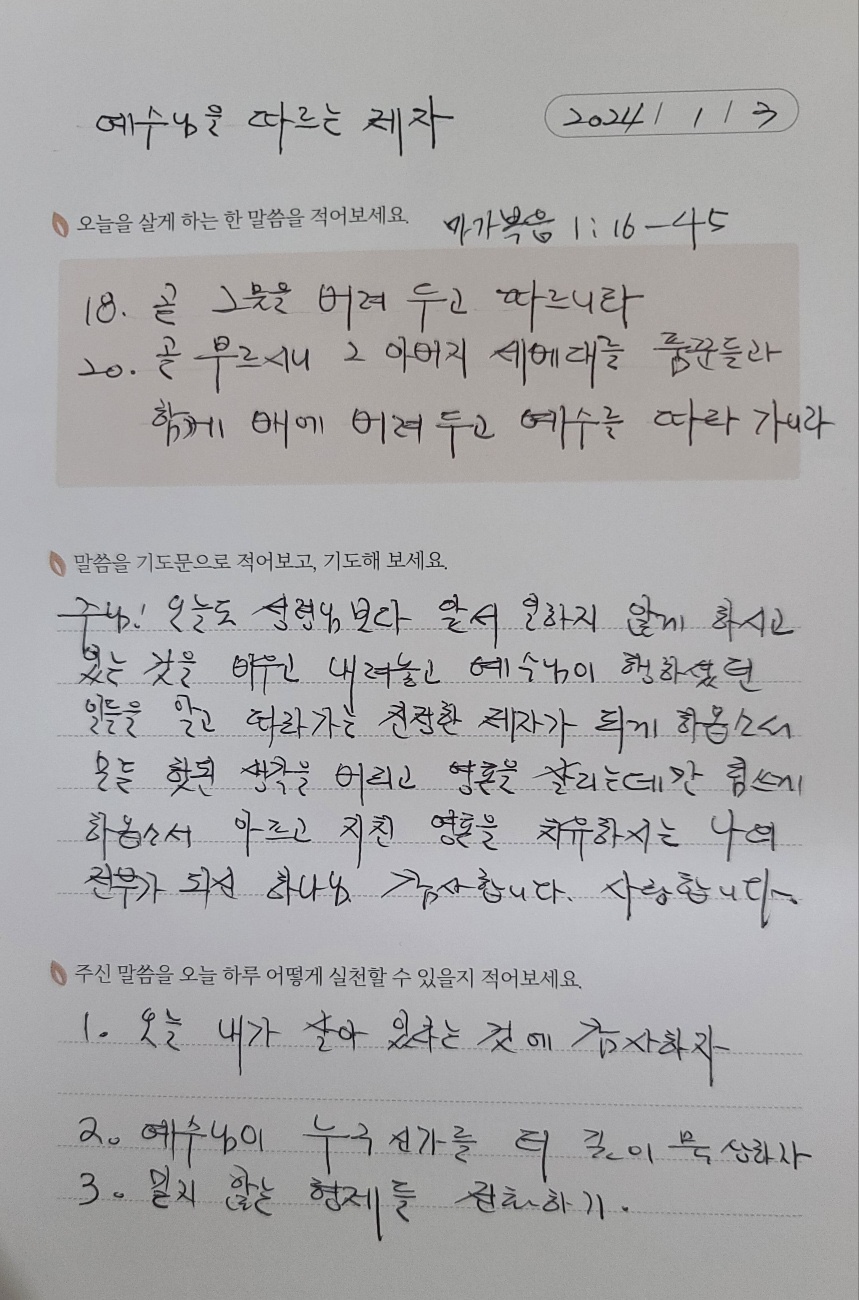 예수님을 따르는 제자
2024 / 1 / 3
오늘을 살게 하는 한 말씀을 적어보세요. 마가복음 1:16-45
18. 곧 그물을 버려 두고 따르니라
20. 곧 부르시니 그 아버지 세베대를 품꾼들과
함께 배에 버려 두고 예수를 따라 가니라
말씀을 기도문으로 적어보고, 기도해 보세요.
주님! 오늘도 성령님보다 앞서 일하지 않게 하시고
있는 것을 비우고 내려놓고 예수님이 행하셨던
일들을 알고 따라가는 진정한 제자가 되게 하옵소서
모든 헛된 생각을 버리고 영혼을 살리는데만 힘쓰게
하옵소서 아프고 지친 영혼을 치유하시는 나의
전부가 되신 하나님 감사합니다. 사랑합니다.
주신 말씀을 오늘 하루 어떻게 실천할 수 있을지 적어보세요.
1. 오늘 내가 살아 있다는 것에 감사하자
2. 예수님이 누구신가를 더 깊이 묵상하자
3. 믿지 않는 형제들 전화하기.